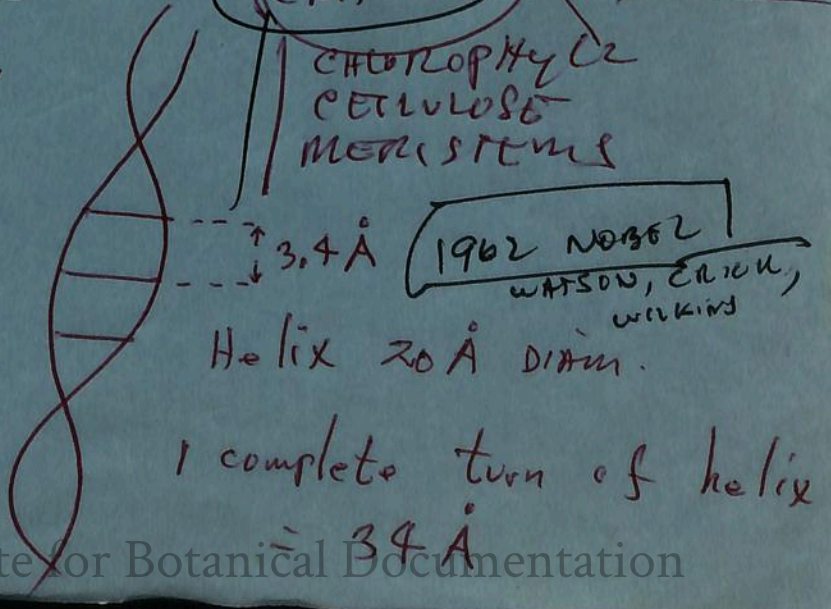 CHLOROPHYLL
CELLULOSE
MERISTEMS
3.4 Å
1962 NOBEL
WATSON, CRICK,
WILKINS
Helix 20 Å DIAM.
1 complete turn of helix
= 34 Å
te for Botanical Documentation